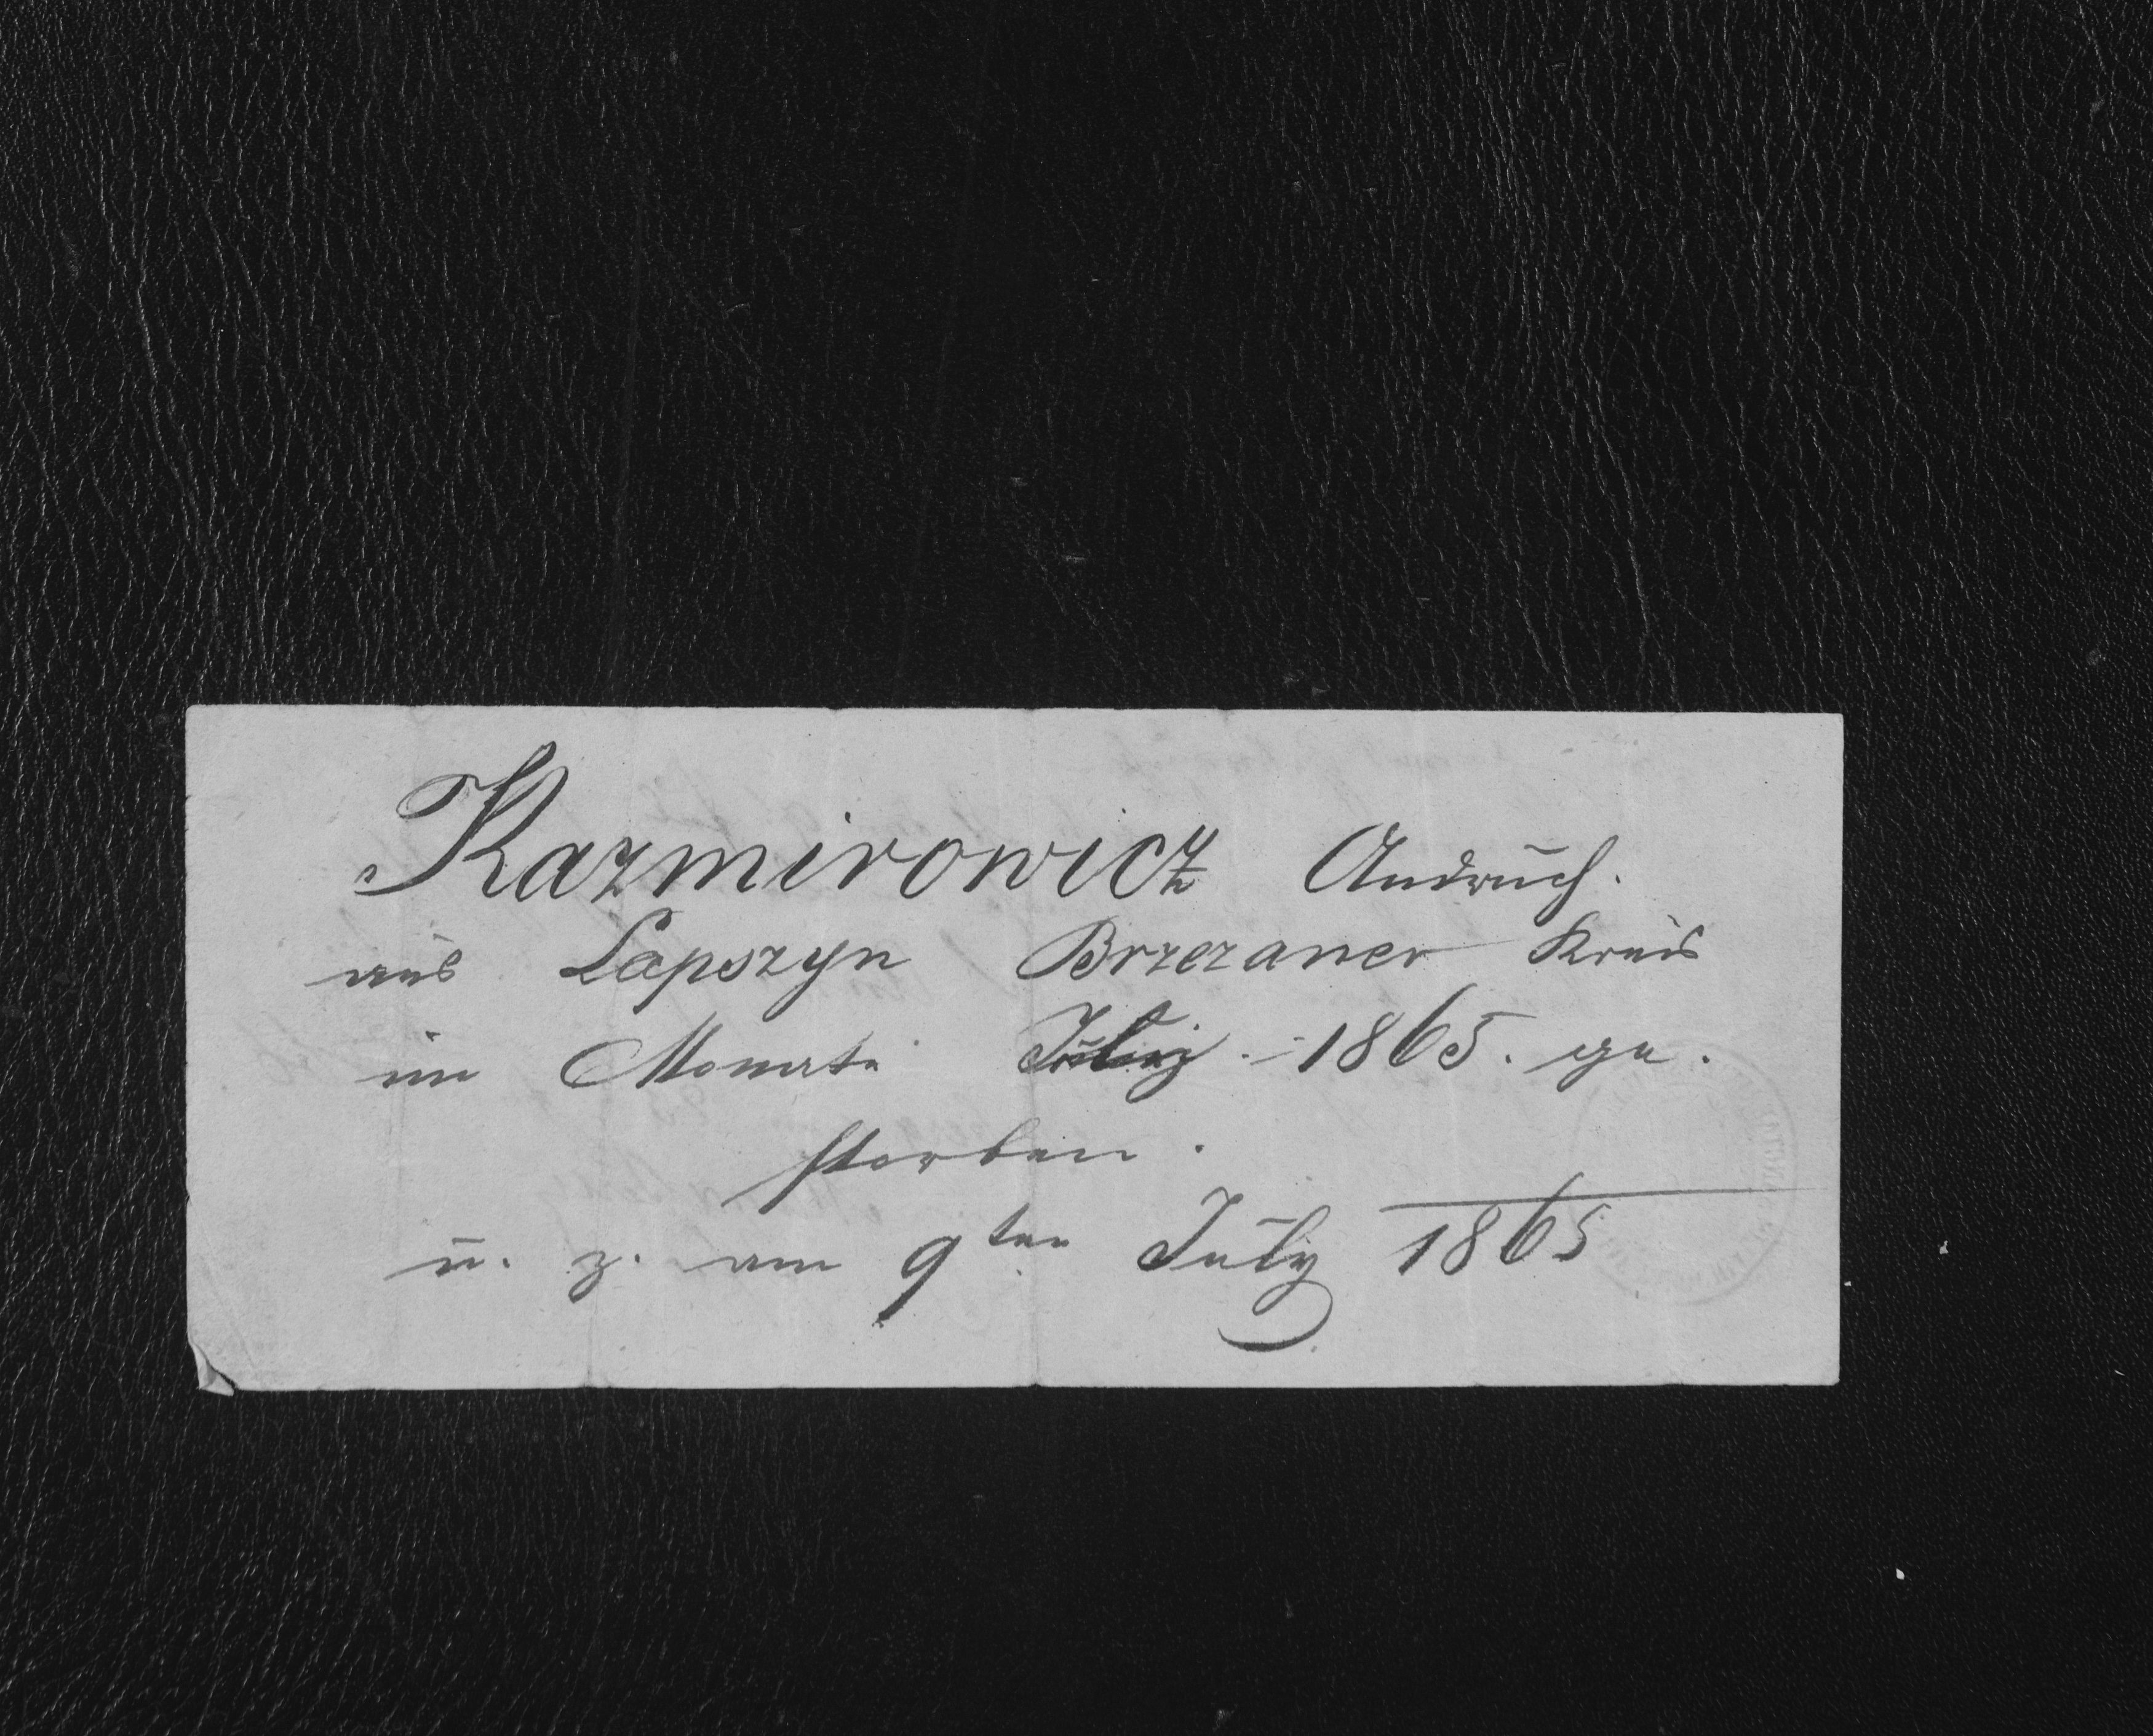 Kazmirowicz Andruch.
aus Lapszyn Brzezaner Kreis
im Monate July 1865. ge.
storben.
u. z. am 9ten July 1865